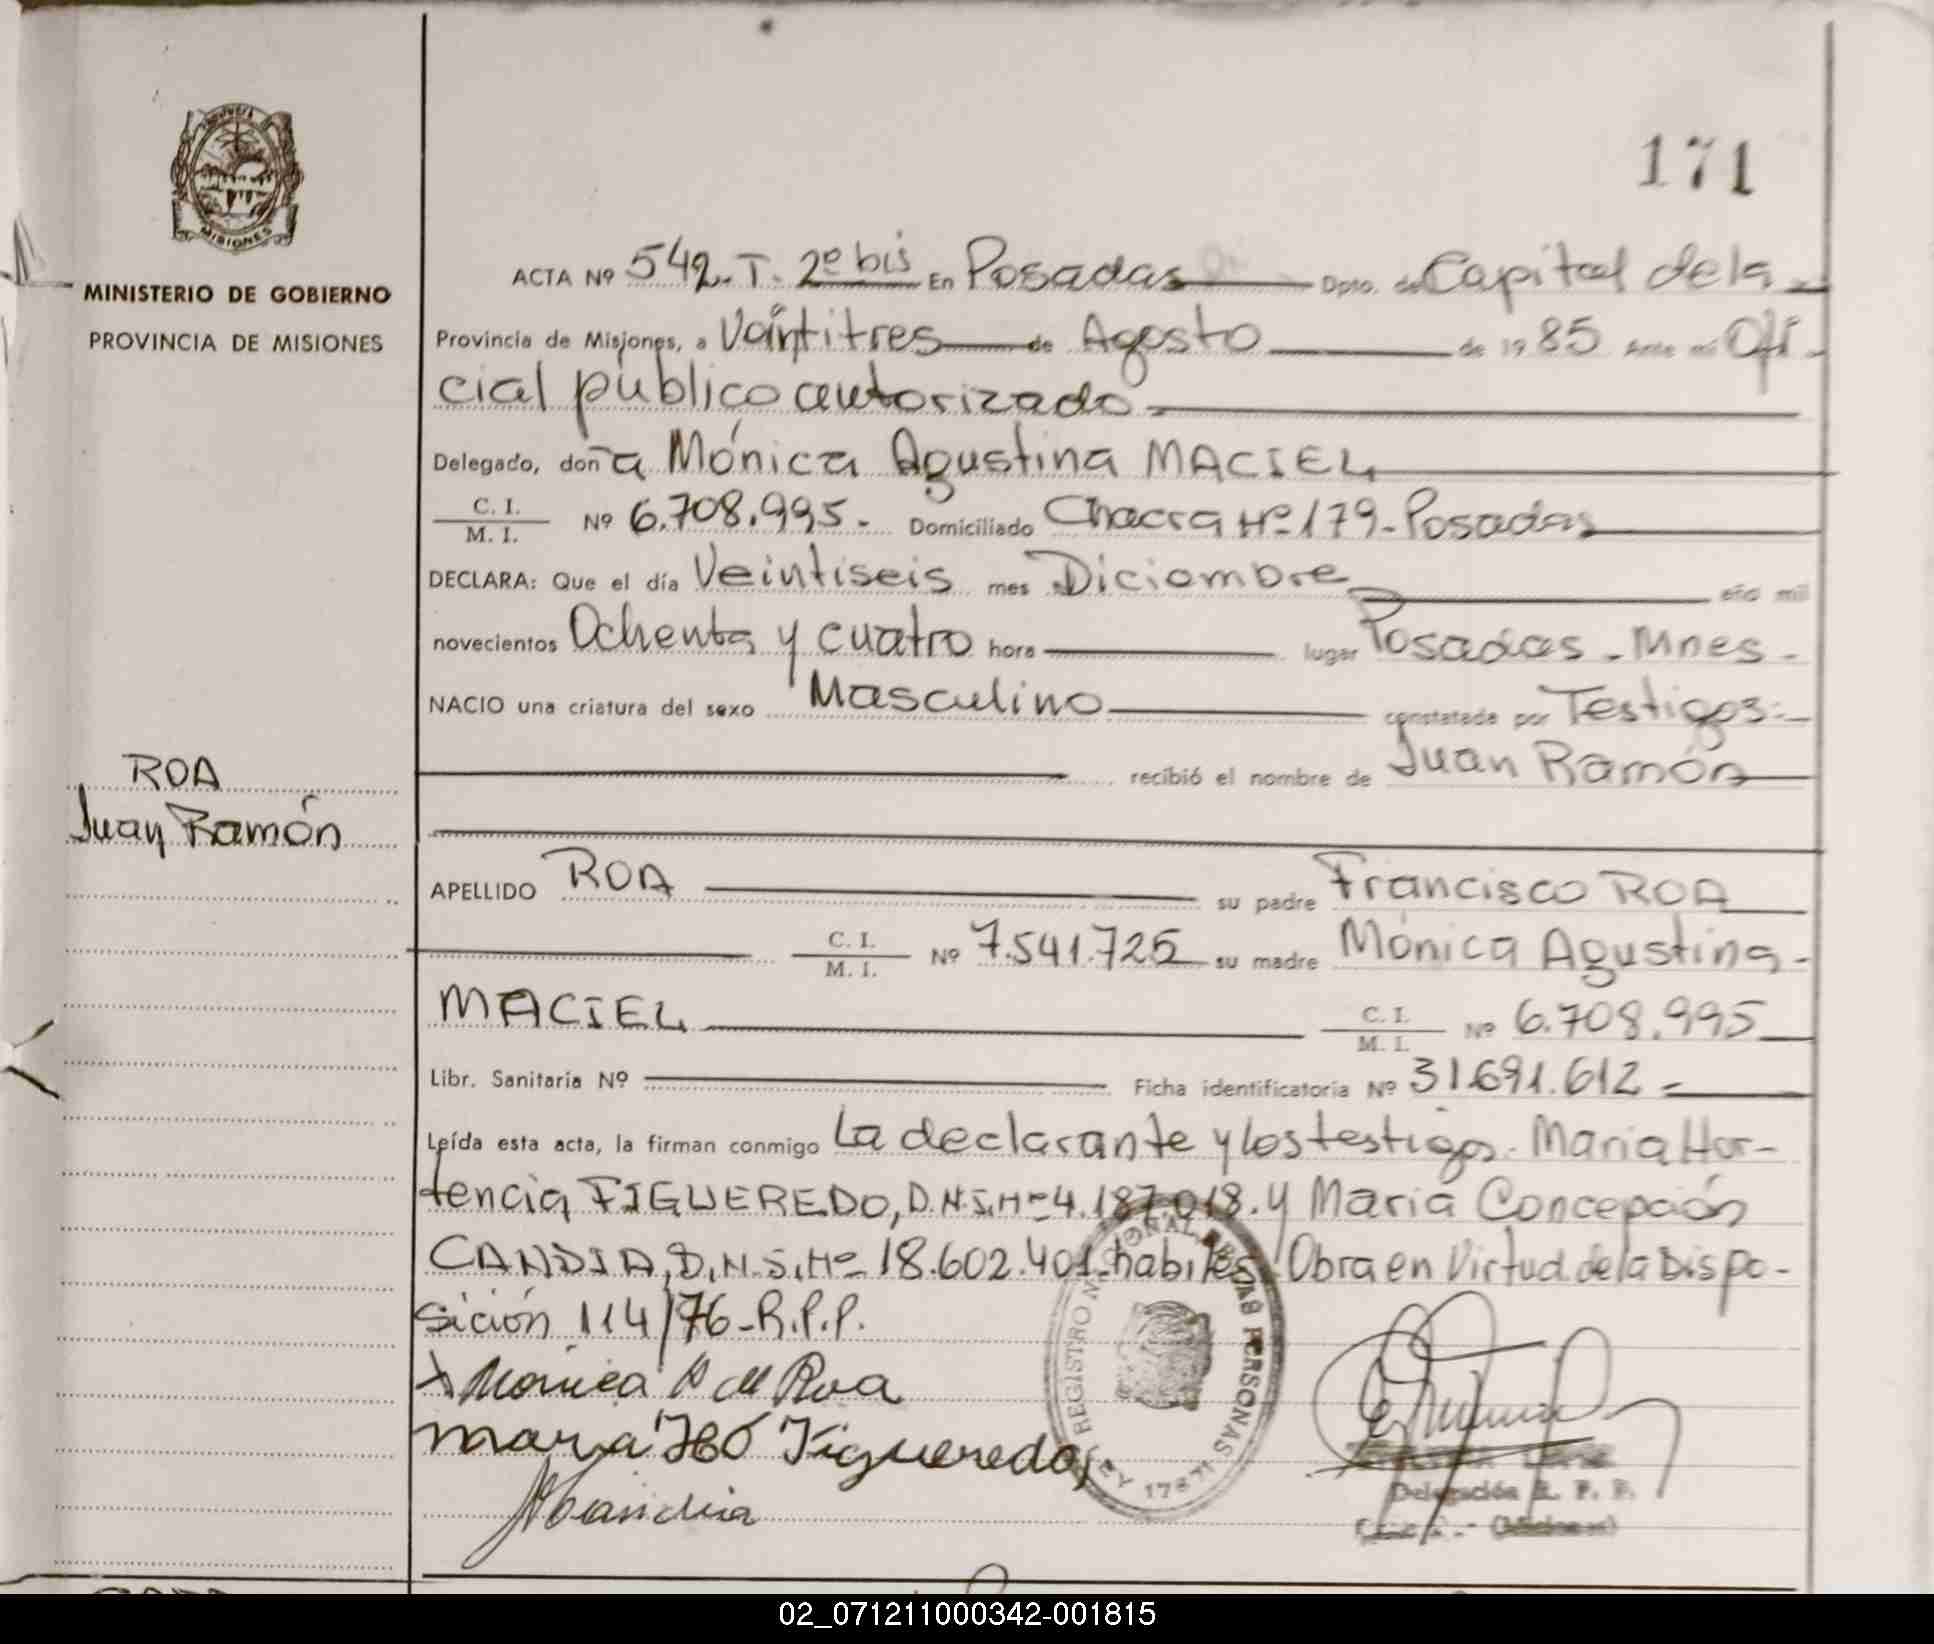 171
MISIONES
MINISTERIO DE GOBIERNO
PROVINCIA DE MISIONES
ACTA Nº 542.T. 2º bis En Posadas Dpto. de Capital de la
Provincia de Misiones, a Veintitres de Agosto de 1985 Ante mi Ofi-
cial público autorizado
Delegado, doña Mónica Agustina MACIEL
C. I.
M. I. Nº 6.708.995.- Domiciliado Chacra Nº 179-Posadas
DECLARA: Que el día Veintiseis mes Diciembre año mil
novecientos Ochenta y cuatro hora lugar Posadas - Mnes -
NACIO una criatura del sexo Masculino constatada por Testigos:-
recibió el nombre de Juan Ramón
ROA
Juan Ramón
APELLIDO ROA su padre Francisco ROA
C. I.
M. I. Nº 7.541.725 su madre Mónica Agustina-
MACIEL C. I.
M. I. Nº 6.708.995
Libr. Sanitaria Nº Ficha identificatoria Nº 31.691.612 -
Leída esta acta, la firman conmigo La declarante y los testigos. Maria Hor-
tencia FIGUEREDO, D.N.I. Nº 4.187.018. y Maria Concepción
CANDIA, D.N.I. Nº 18.602.401. habiles. Obra en Virtud de la Dispo-
sición 114/76-R.P.P.
Monica M de Roa
Figueredo
REGISTRO NACIONAL DE LAS PERSONAS
LEY 17671
Delegación R. P. P.
(Misiones)
02_071211000342-001815